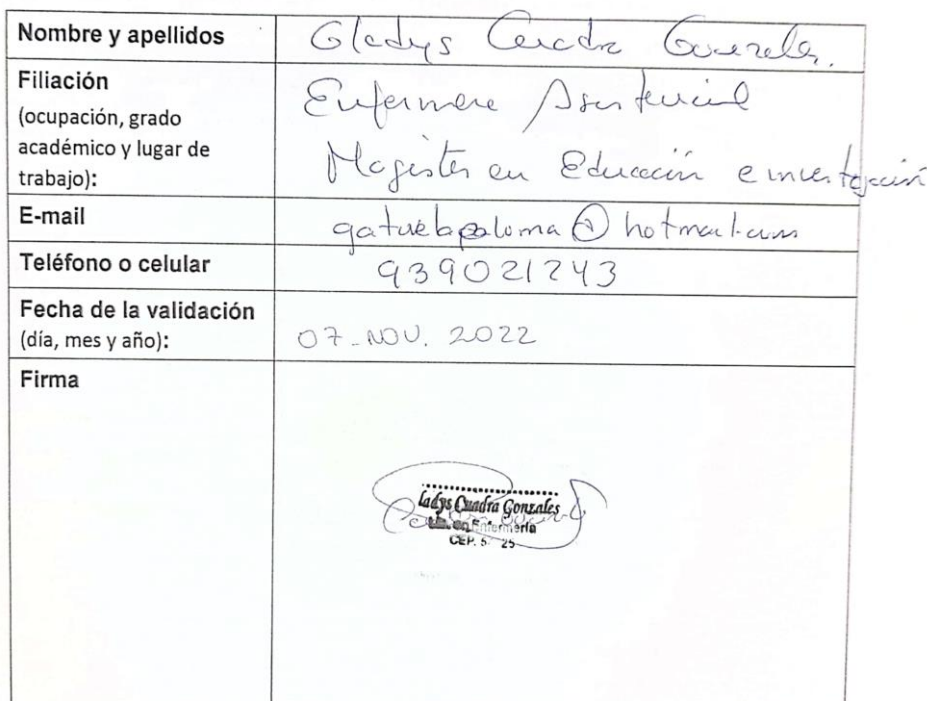 Nombre y apellidos
Gladys Cuadra Gonzales.
Filiación
(ocupación, grado
académico y lugar de
trabajo):
Enfermera Asistencial
Magister en Educación e investigación
E-mail
@hotmail.com
Teléfono o celular
939021243
Fecha de la validación
(día, mes y año):
07-NOV. 2022
Firma
ladys Cuadra Gonzales
Lic. en Enfermería
CEP. 5 25